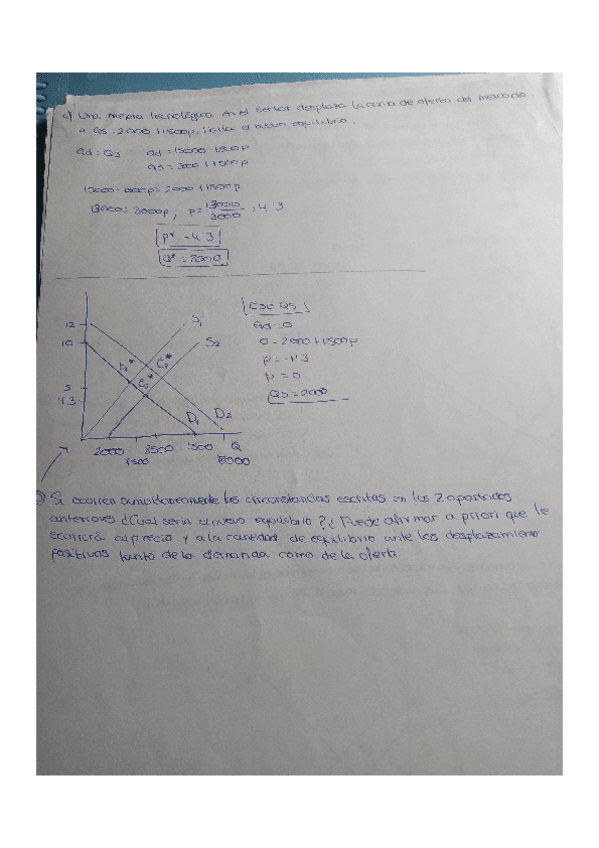 c) Una mejora tecnológica en el sector desplaza la curva de oferta del mercado
a Qs=2000+1500p. Halla el nuevo equilibrio.
Qd=Qs Qd=15000-1500p
Qs=2000+1500p
15000-1500p=2000+1500p
13000=3000p, p=13000/3000=4'3
p*=4'3
Q*=8500
CSL QS
Qd=0
0=2000+1500p
p=-1'3
p=0
Qs=2000
12
10
5
4.3
S1
S2
E1*
E2*
E3*
D1 D2
2000 8500 Q
7500 18000
Si ocurren simultáneamente las circunstancias escritas en los 2 apartados
anteriores ¿Cuál sería el nuevo equilibrio? ¿Puede afirmar a priori que le
ocurrirá al precio y a la cantidad de equilibrio ante los desplazamiento
positivos tanto de la demanda como de la oferta